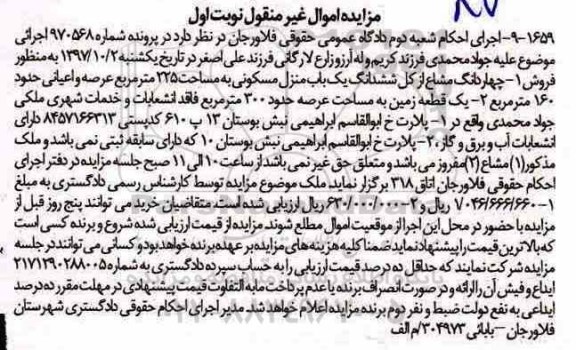 مزایده اموال غیر منقول نوبت اول
۱۶۵۹-۹- اجرای احکام شعبه دوم دادگاه عمومی حقوقی فلاورجان در نظر دارد در پرونده شماره ۹۷۰۵۶۸ اجرائی
موضوع علیه جواد محمدی فرزند کریم وله آرزو زارع لارگانی فرزند علی اصغر در تاریخ یکشنبه ۱۳۹۷/۱۰/۲ به منظور
فروش ۱- چهار دانگ مشاع از کل ششدانگ یک باب منزل مسکونی به مساحت ۲۲۵ مترمربع عرصه و اعیانی حدود
۱۶۰ مترمربع ۲- یک قطعه زمین به مساحت عرصه حدود ۳۰۰ مترمربع فاقد انشعابات و خدمات شهری ملکی
جواد محمدی واقع در ۱- پلارت خ ابوالقاسم ابراهیمی نبش بوستان ۱۳ پ ۶۱۰ کدپستی ۸۴۵۷۱۶۶۳۱۳ دارای
انشعابات آب و برق و گاز ۲- پلارت خ ابوالقاسم ابراهیمی نبش بوستان ۱۰ که دارای سابقه ثبتی نمی باشد و ملک
مذکور (۱) مشاع (۲) مفروز می باشد و متعلق حق غیر نمی باشد از ساعت ۱۰ الی ۱۱ صبح جلسه مزایده در دفتر اجرای
احکام حقوقی فلاورجان اتاق ۳۱۸ برگزار نماید ملک موضوع مزایده توسط کارشناس رسمی دادگستری به مبلغ
۱- ۷/۰۴۶/۶۶۶/۶۶۰ ریال و ۲- ۶۲۰/۰۰۰/۰۰۰ ریال ارزیابی شده است. متقاضیان خرید می توانند پنج روز قبل از
مزایده با حضور در محل این اجرا از موقعیت اموال مطلع شوند مزایده از قیمت ارزیابی شده شروع و برنده کسی است
که بالاترین قیمت را پیشنهاد نماید ضمنا کلیه هزینه های مزایده بر عهده برنده خواهد بود و کسانی می توانند در جلسه
مزایده شرکت نمایند که حداقل ده درصد قیمت ارزیابی را به حساب سپرده دادگستری به شماره ۲۱۷۱۲۹۰۲۸۸۰۰۵
ایداع و فیش آن را ارائه و در صورت انصراف برنده یا عدم پرداخت مابه التفاوت قیمت پیشنهادی در مهلت مقرر ده درصد
ایداعی به نفع دولت ضبط و نفر دوم برنده مزایده اعلام خواهد شد. مدیر اجرای احکام حقوقی دادگستری شهرستان
فلاورجان - بابائی ۳۰۴۹۷۳/م الف